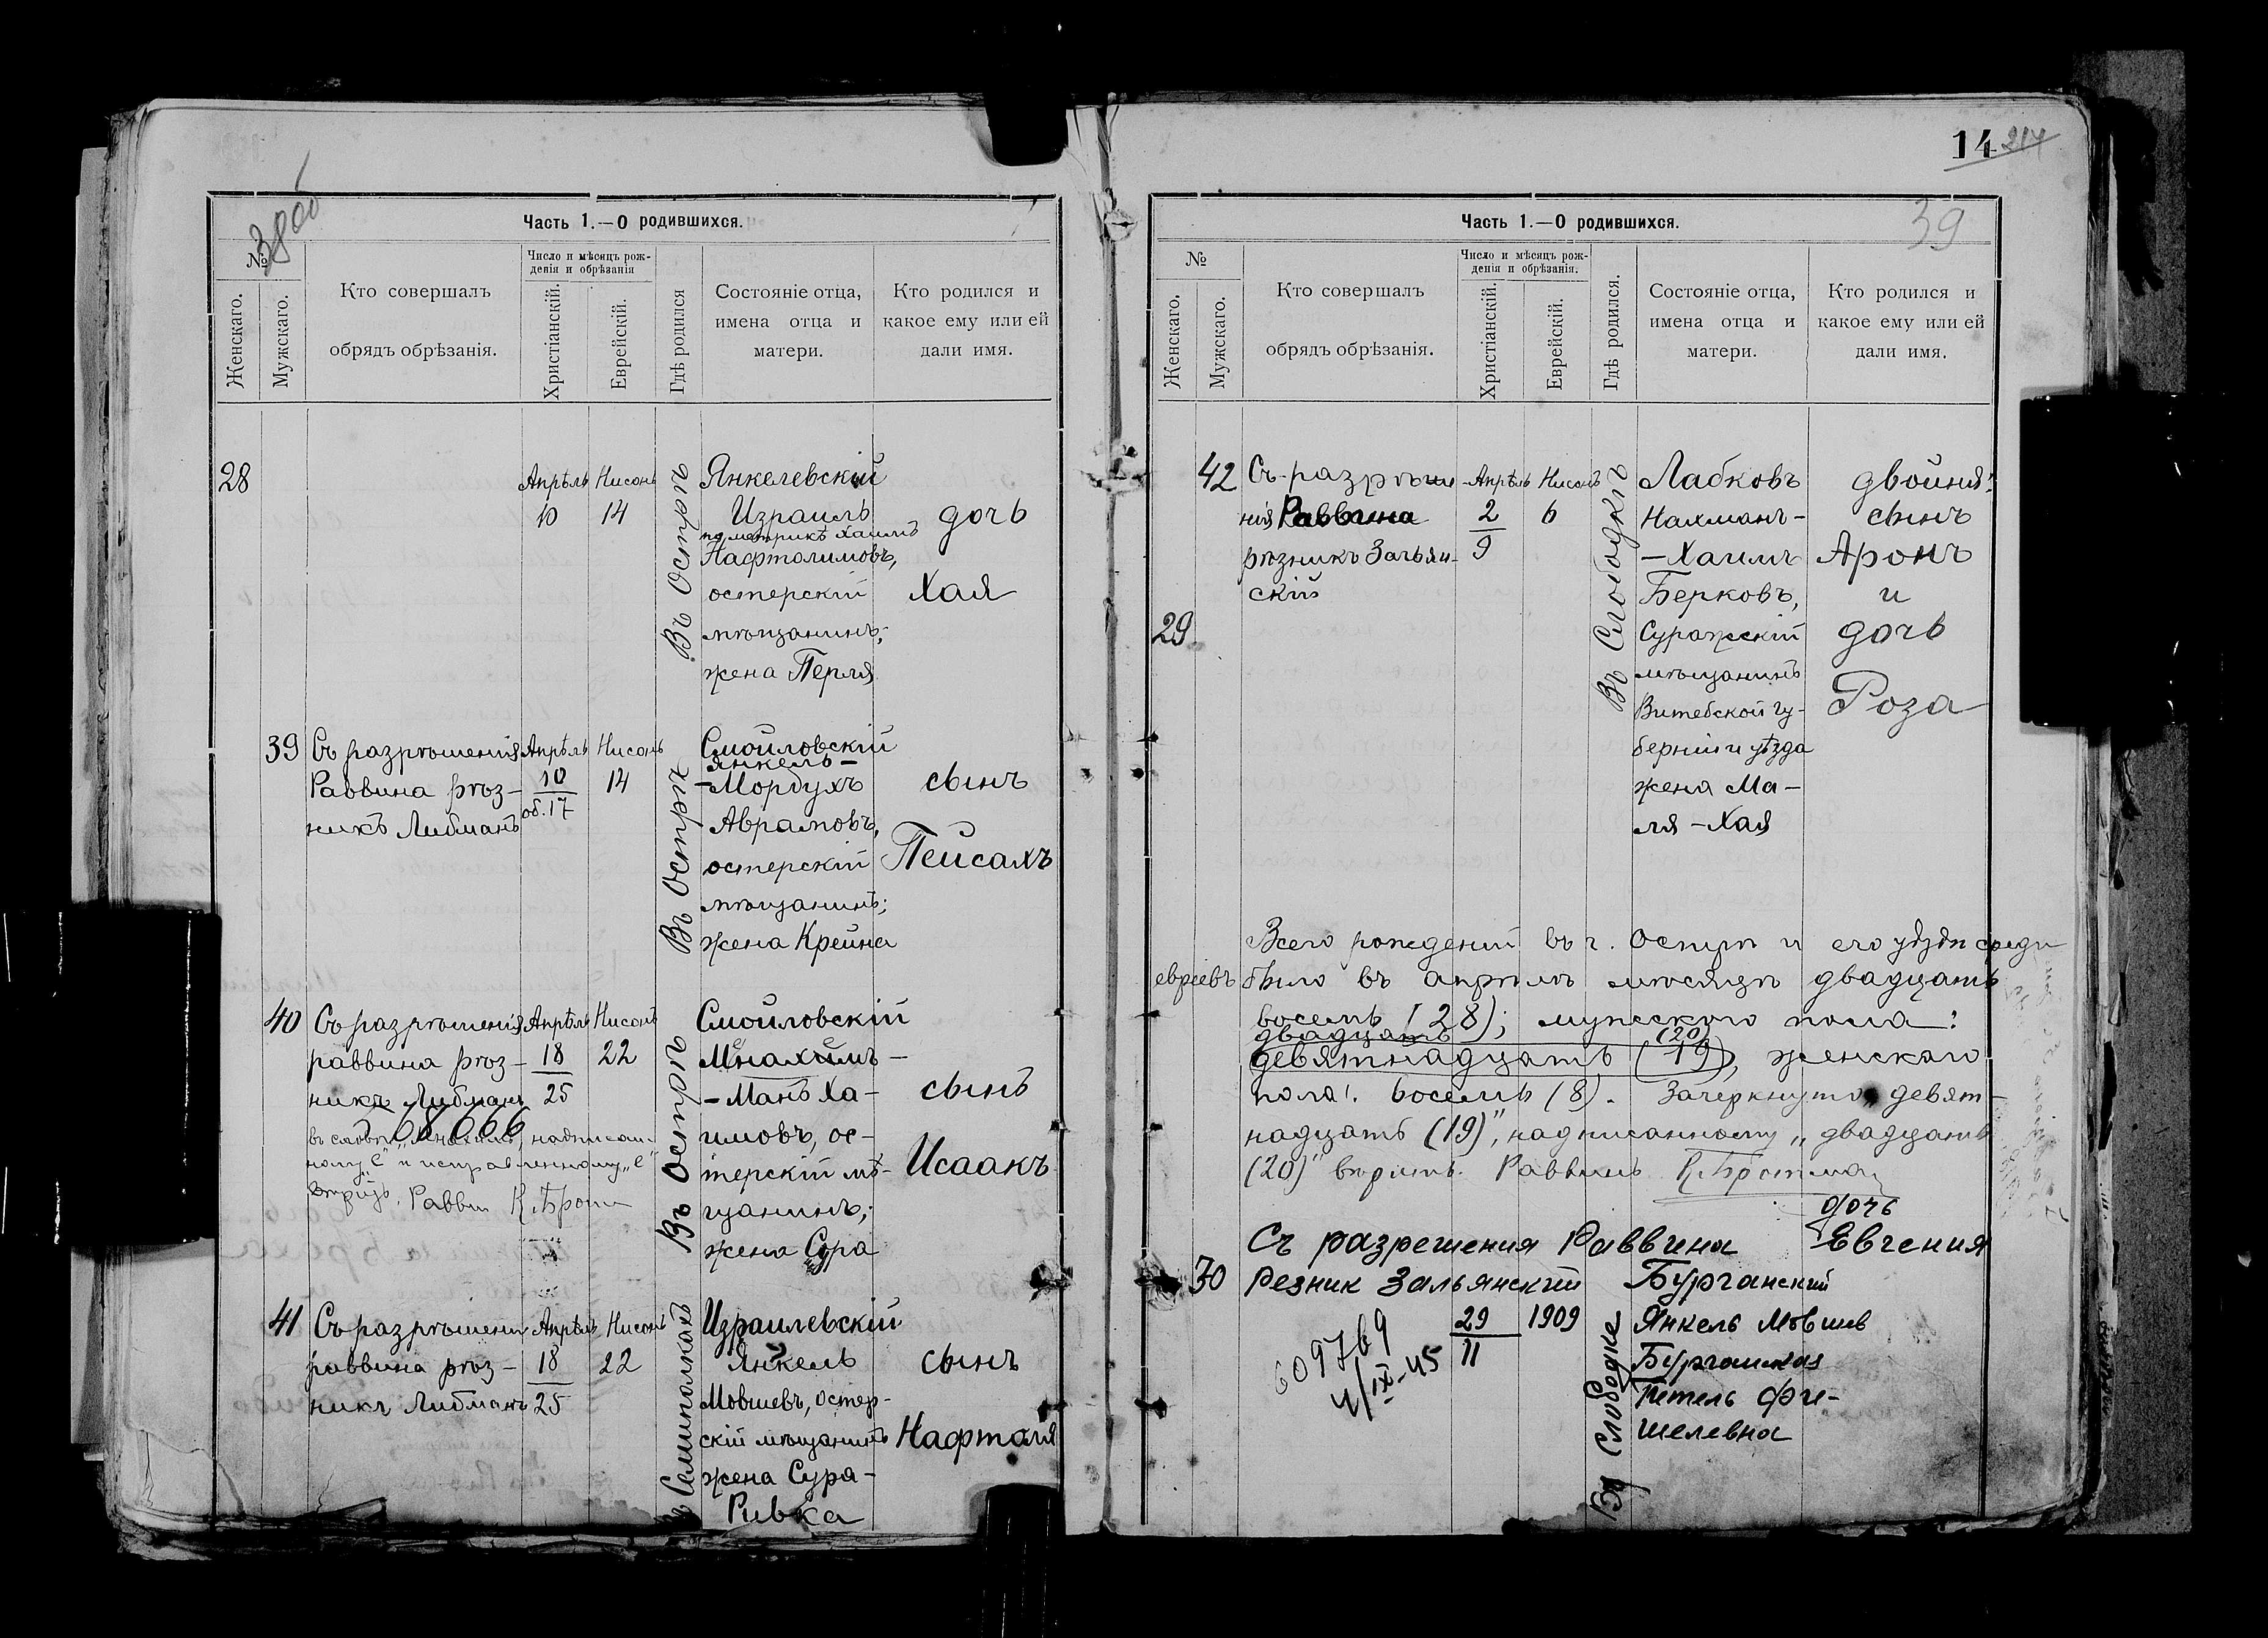 Часть 1.—О родившихся.
№
3800
Женскаго.
Мужскаго.
Кто совершалъ
обрядъ обрѣзанія.
Число и мѣсяцъ рож-
денія и обрѣзанія
Христіанскій.
Еврейскій.
Гдѣ родился
Состояніе отца,
имена отца и
матери.
Кто родился и
какое ему или ей
дали имя.
28
Апрѣль Нисонъ
10 14
Въ Острѣ
Янкелевскій
Израиль
по метрикѣ Хаимъ
Нафтолимовъ,
остерскій
мѣщанинъ;
жена Перля
дочь
Хая
39
Съ разрѣшенія
Раввина рѣз-
никъ Либманъ
Апрѣль Нисонъ
10 14
об. 17
Въ Острѣ
Смоиловскій
Янкель-
-Мордухъ
Аврамовъ,
остерскій
мѣщанинъ;
жена Крейна
сынъ
Пейсахъ
40
Съ разрѣшенія
раввина рѣз-
никъ Либманъ
Апрѣль Нисонъ
18 22
25
Въ Острѣ
Смоиловскій
Мнахимъ-
-Манъ Ха-
имовъ, ос-
терскій мѣ-
щанинъ;
жена Сура
сынъ
Исаакъ
въ словѣ надписан-
ному „е" и исправленному „е"
Раввин
41
Съ разрѣшенія
раввина рѣз-
никъ Либманъ
Апрѣль Нисонъ
18 22
25
Израилевскій
Янкель
Мовшевъ, остер-
скій мѣщанинъ
жена Сура-
Ривка
сынъ
Нафтоля
14 217
39
Часть 1.—О родившихся.
№
Женскаго.
Мужскаго.
Кто совершалъ
обрядъ обрѣзанія.
Число и мѣсяцъ рож-
денія и обрѣзанія.
Христіанскій.
Еврейскій.
Гдѣ родился.
Состояніе отца,
имена отца и
матери.
Кто родился и
какое ему или ей
дали имя.
42
29
Съ разрѣше
нія Раввина
рѣзникъ Зальян-
скій
Апрѣль Нисонъ
2 6
9
Въ Слободкѣ
Лабковъ
Нахманъ-
-Хаимъ
Берковъ,
Суражскій
мѣщанинъ
Витебской гу-
берніи и уѣзда
жена Ма-
ля-Хая
двойня:
сынъ
Аронъ
и
дочь
Роза
Всего рожденій въ г. Острѣ и его уѣздѣ среди
евреевъ было въ апрѣлѣ мѣсяцѣ двадцать
восемь (28); мужского пола:
двадцать (20)
девятнадцать (19), женскаго
пола: восемь (8). Зачеркнуто „девят-
надцать (19)", надписанному „двадцать
(20)" вѣрить. Раввинъ
дочь
Съ разрешения Раввина Евгения
30 Резник Зальянский Бурганский
29 1909 Янкель Мовшев
11
Бурганская
Гетель Фи-
шелевна
Въ Слободке
609769
4/IX-45